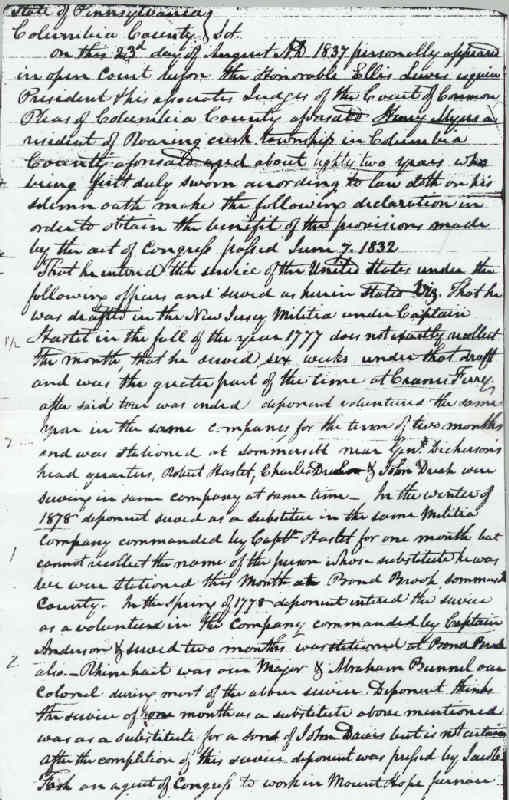 State of Pennsylvania
Columbia County } Sct.
On this 23d day of August AD 1837 personally appeared
in open Court before the Honorable Ellis Lewis esquire
President & his associates Judges of the Court of Common
Pleas of Columbia County aforesaid Henry Myers a
resident of Roaring creek township in Columbia
County aforesaid aged about eighty two years who
being first duly sworn according to law doth on his
solemn oath make the following declaration in
order to obtain the benefit of the provisions made
by the act of Congress passed June 7. 1832
That he entered the service of the United States under the
following officers and served as herein stated Viz. That he
was drafted in the New Jersey Militia under Captain
Haslet in the fall of the year 1777 does not exactly recollect
1½ the month, that he served six weeks under that draft
and was the greater part of the time at Cranes Ferry
after said tour was ended deponent volunteered the same
year in the same company for the term of two months
2 and was stationed at Sommersett near Genl. Dickersons
head quarters, Robert Haslet, Charles & John Dush were
serving in same company at same time – In the winter of
1878 deponent served as a substitute in the same Militia
company commanded by Captn Haslet for one month but
1 cannot recollect the name of the person whose substitute he was
we were stationed this Month at Bound Brook sommersett
County. In the Spring of 1778 deponent entered the service
as a volunteer in the company commanded by Captain
Anderson & served two months was stationed at Bound Brook
2 also – Rhinehart was our Major & Abraham Bunnel our
Colonel during most of the above service. Deponent thinks
the service of one month as a substitute above mentioned
was as a substitute for a son of John Davis but is not certain
After the completion of this service deponent was pressed by
an agent of Congress to work in Mount Hope furnace